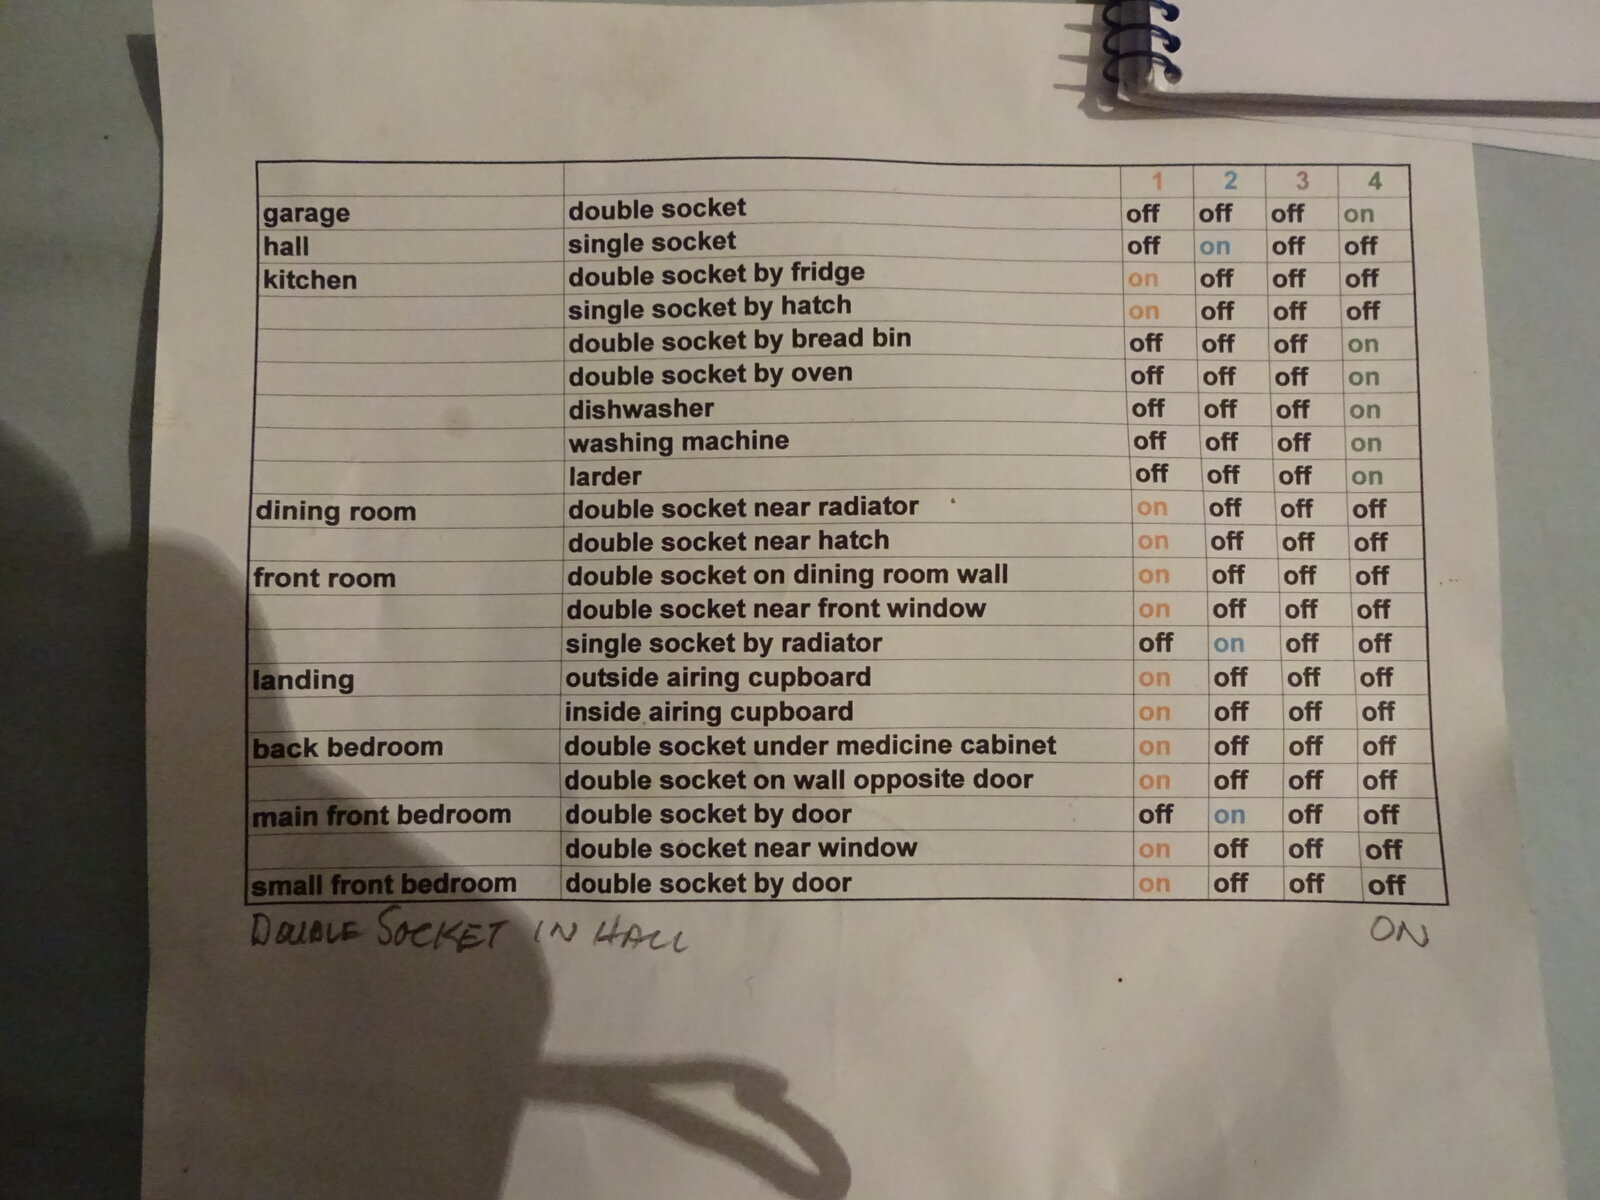 1 2 3 4
garage double socket off off off on
hall single socket off on off off
kitchen double socket by fridge on off off off
single socket by hatch on off off off
double socket by bread bin off off off on
double socket by oven off off off on
dishwasher off off off on
washing machine off off off on
larder off off off on
dining room double socket near radiator on off off off
double socket near hatch on off off off
front room double socket on dining room wall on off off off
double socket near front window on off off off
single socket by radiator off on off off
landing outside airing cupboard on off off off
inside airing cupboard on off off off
back bedroom double socket under medicine cabinet on off off off
double socket on wall opposite door on off off off
main front bedroom double socket by door off on off off
double socket near window on off off off
small front bedroom double socket by door on off off off
DOUBLE SOCKET IN HALL ON